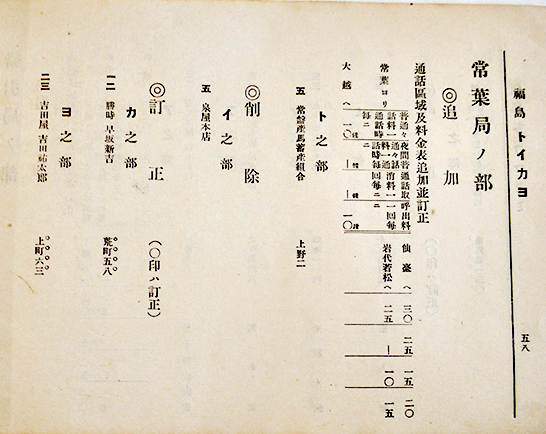 福島 トイカヨ 五八
常葉局ノ部
◎追加
通話區域及料金表追加並訂正
常葉ヨリ
普通々話料一通話時每ニ
夜間普通々話料一通話時每ニ
通話取消料一回每ニ
呼出料一回每ニ
大越ヘ 一〇錢 ー錢 ー錢 一〇錢
仙臺ヘ 三〇 二五 一五 二〇
岩代若松ヘ 二五 ー 一〇 一五
トノ部
五 常盤產馬畜產組合 上野二
◎削除
イ之部
五 泉屋本店
◎訂正 (〇印ハ訂正)
カ之部
一二 勝時 早坂新吉 荒町五八
ヨ之部
二三 吉田屋 吉田祐太郎 上町六三